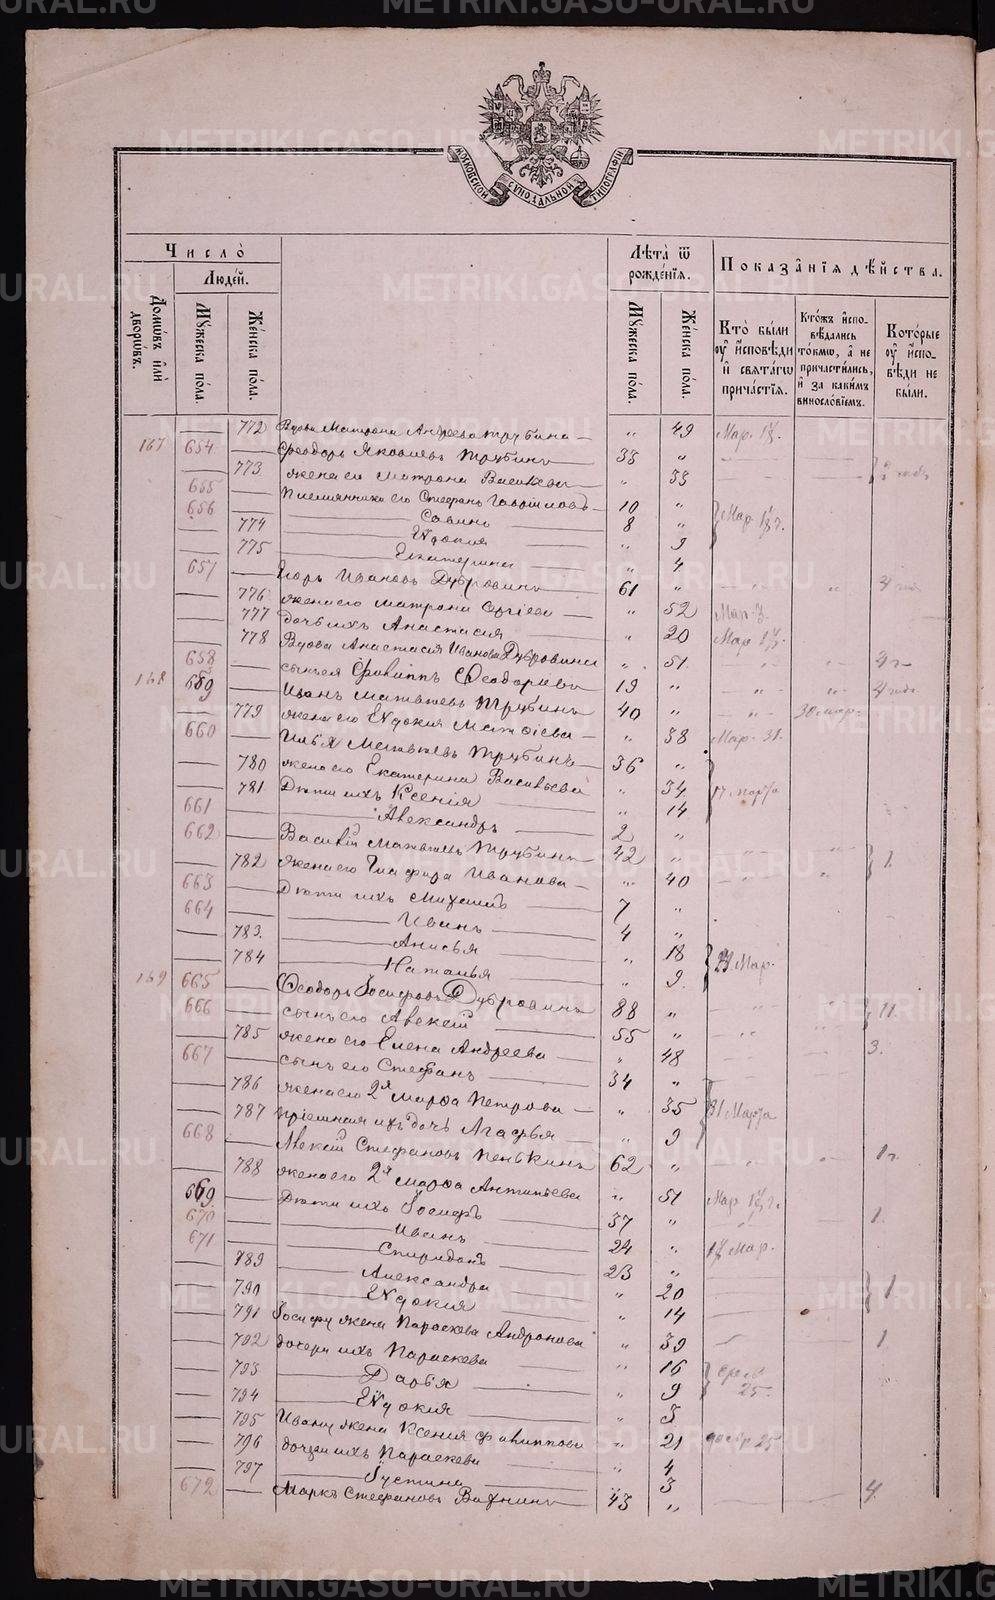 METRIKI.GASO-URAL.RU
МОСКОВСКОЙ СѴНОДАЛЬНОЙ ТИПОГРАФІИ
Число̀
Людéй.
Домѡ́въ и҆лѝ дворѡ́въ.
Мꙋ́жеска по́ла.
Же́нска по́ла.
Лѣ́та ѿ рожде́нїѧ.
Мꙋ́жеска по́ла.
Же́нска по́ла.
Показа̂нїѧ дѣ́йства.
Кто̀ бы́ли ᲂу҆ и҆сповѣ́ди и҆ свѧта́гѡ прича́стїѧ.
Кто́жъ и҆сповѣ́дались то́кмѡ, а҆ не причасти́лись, и҆ за каки́мъ винословїемъ.
Кото́рые ᲂу҆ и҆сповѣ́ди не бы́ли.
772 Вдова Матрона Андреева Трубина „ 49 Мар.
167 654 Ѳеодоръ Яковлевъ Трубинъ 33 „
773 жена его Матрона Васильева „ 33
655 Племянники его Стефанъ Гавриловъ 10 „
656 Савинъ 8 „ Мар.
774 Евдокия „ 9
775 Екатерина „ 4
657 Егоръ Ивановъ Дубровинъ 61 „
776 жена его Матрона Сергіева „ 52 Мар.
777 дочь ихъ Анастасія „ 20 Мар
778 Вдова Анастасия Иванова Дубровина „ 51
658 сынъ ея Филиппъ Ѳеодоровъ 19 „
168 659 Иванъ Матвѣевъ Трубинъ 40 „ 30 мар.
779 жена его Евдокия Матѳіева „ 38 Мар. 31.
660 Илья Матвѣевъ Трубинъ 36 „
780 жена его Екатерина Васильева „ 34 17 марта
781 Дѣти ихъ Ксенія „ 14
661 Александръ 2 „
662 Василій Матвѣевъ Трубинъ 42 „ 1.
782 жена его Глафира Иванова „ 40
663 Дѣти ихъ Михаилъ 7 „
664 Иванъ 4 „
783. Анисья „ 18
784 Наталья „ 9 Мар.
169 665 Ѳеодоръ Іосифовъ Дубровинъ 88 „ 11.
666 сынъ его Алексій 55 „
785 жена его Елена Андреева „ 48 3.
667 сынъ его Стефанъ 34 „
786 жена его 2я Марѳа Петрова „ 35 31 Марта
787 пріемная ихъ дочь Агафья „ 9
668 Алексій Стефановъ Пенькинъ 62 „ 1г
788 жена его 2я Марѳа Антипьева „ 51 Мар.
669. Дѣти ихъ Іосифъ 37 „ 1.
670 Иванъ 24 „ Мар.
671 Спиридонъ 23 „
789 Александра „ 20 1
790 Евдокия „ 14
791 Іосифу жена Параскева Андронова „ 39 1.
792 дочери ихъ Параскева „ 16
793 Дарья „ 9 25.
794 Евдокия „ 3
795 Ивану жена Ксения Филиппова „ 21 25
796 дочери ихъ Параскева „ 4
797 Іустина „ 3
672 Маркъ Стефановъ Вахнинъ 43 „ 4.